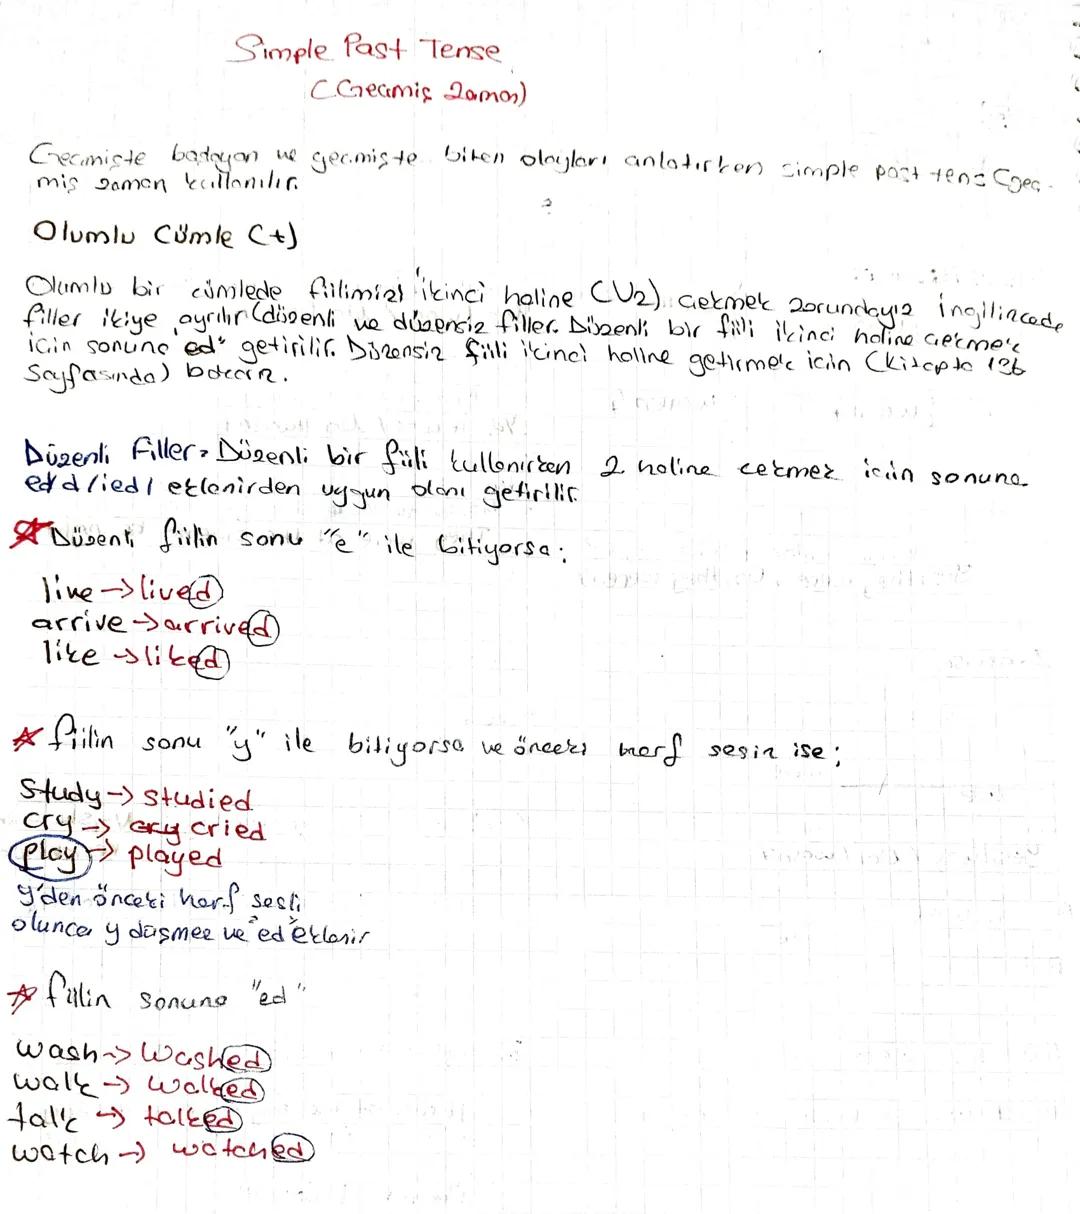 Simple Past Tense
(Gecmiş Zaman)
Gecmişte başlayan ve gecmişte biten olayları anlatırken simple past tens (gec-
miş zaman kullanılır.
Olumlu Cümle (+)
Olumlu bir cümlede fiilimizi ikinci haline (V2) cekmek zorundayız İngilizcede
fiiller ikiye ayrılır (düzenli ve düzensiz fiiller. Düzenli bir fiili ikinci haline cekmek
icin sonuna "ed" getirilir. Düzensiz fiili ikinci haline getirmek icin (kitapta 136
Sayfasında) bakarız.
Düzenli Fiiller: Düzenli bir fiili kullanırken 2. haline cekmek icin sonuna
ed/d/ied/ eklenirden uygun olanı getirilir.
Düzenli fiilin sonu "e" ile bitiyorsa;
live → lived
arrive → arrived
like → liked
fiilin sonu "y" ile bitiyorsa ve önceki harf sesiz ise;
Study → studied
cry → cry cried
play → played
y'den önceki harf sesli
olunca y düşmez ve "ed" eklenir
fiilin sonuna "ed"
wash → washed
walk → walked
talk → talked
watch → watched